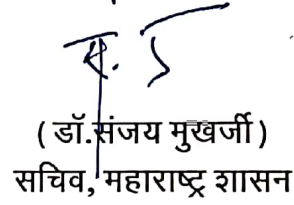 ( डॉ.संजय मुखर्जी )
सचिव, महाराष्ट्र शासन